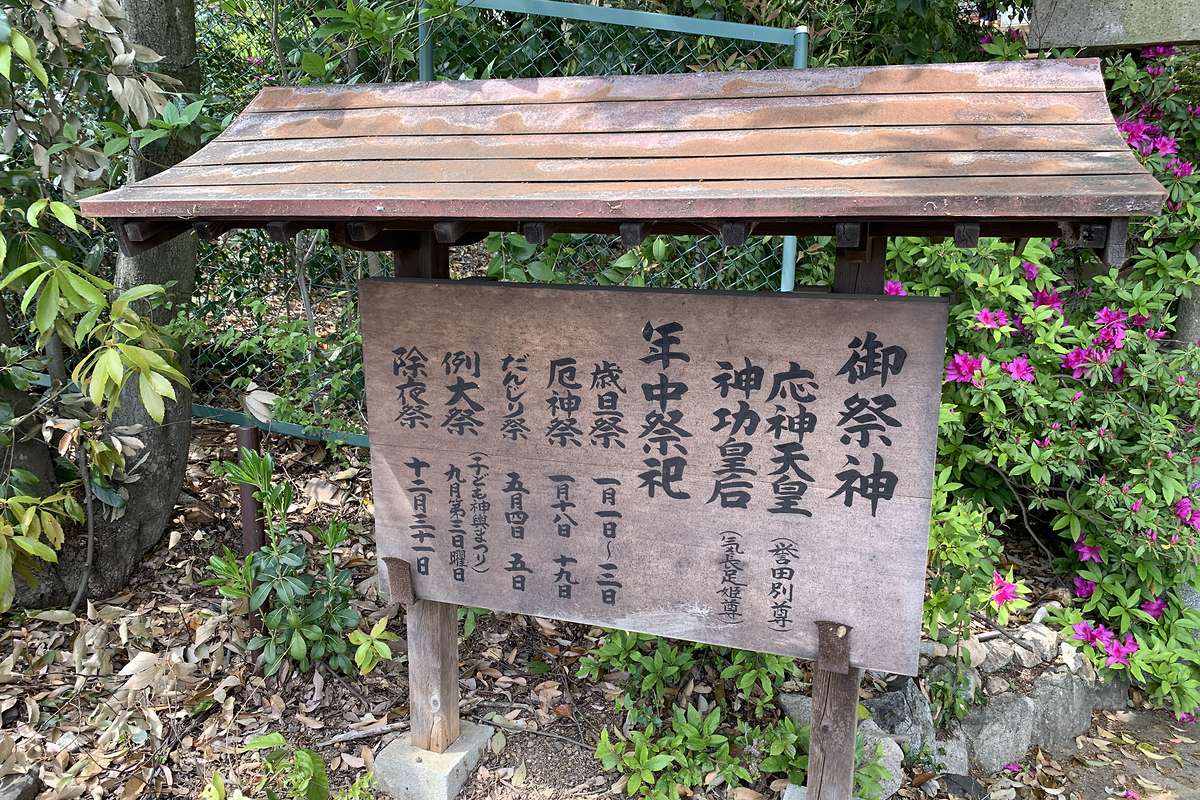 御祭神
応神天皇（誉田別尊）
神功皇后（気長足姫尊）
年中祭祀
歳旦祭 一月一日～三日
厄神祭 一月十八日 十九日
だんじり祭 五月四日 五日
例大祭（子ども神輿まつり） 九月第三日曜日
除夜祭 十二月三十一日